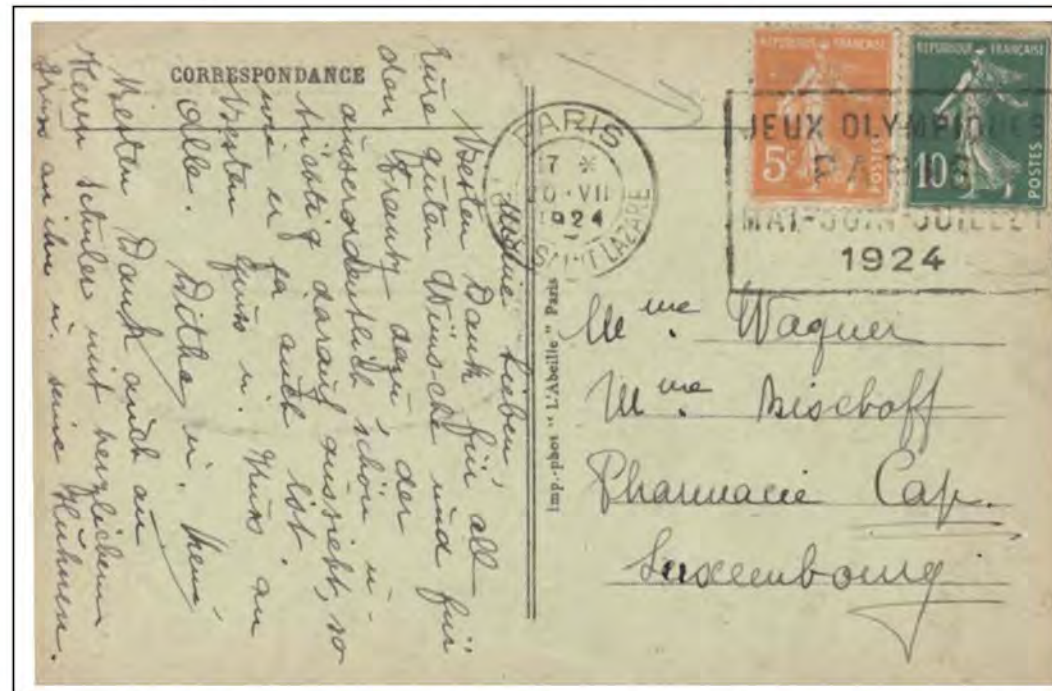 CORRESPONDANCE
Meine Lieben!
Besten Dank für all
Eure guten Wünsche und für
den dazu, der
ausserordentlich schön u.
aussieht, so
wie er ja auch ist.
Besten Gruss u. Kuss an
Alle.
Besten Dank auch an
Herrn Schuler mit herzlichem
Gruss an ihn u. seine
Imp.-phot "L'Abeille" Paris
PARIS
17 *
20 - VII
1924
SAINT LAZARE
REPUBLIQUE FRANÇAISE
5c
POSTES
REPUBLIQUE FRANÇAISE
10c
POSTES
JEUX OLYMPIQUES
PARIS
MAI-JUIN-JUILLET
1924
Mme. Wagner
Mme. Bischoff
Pharmacie Cap.
Luxembourg